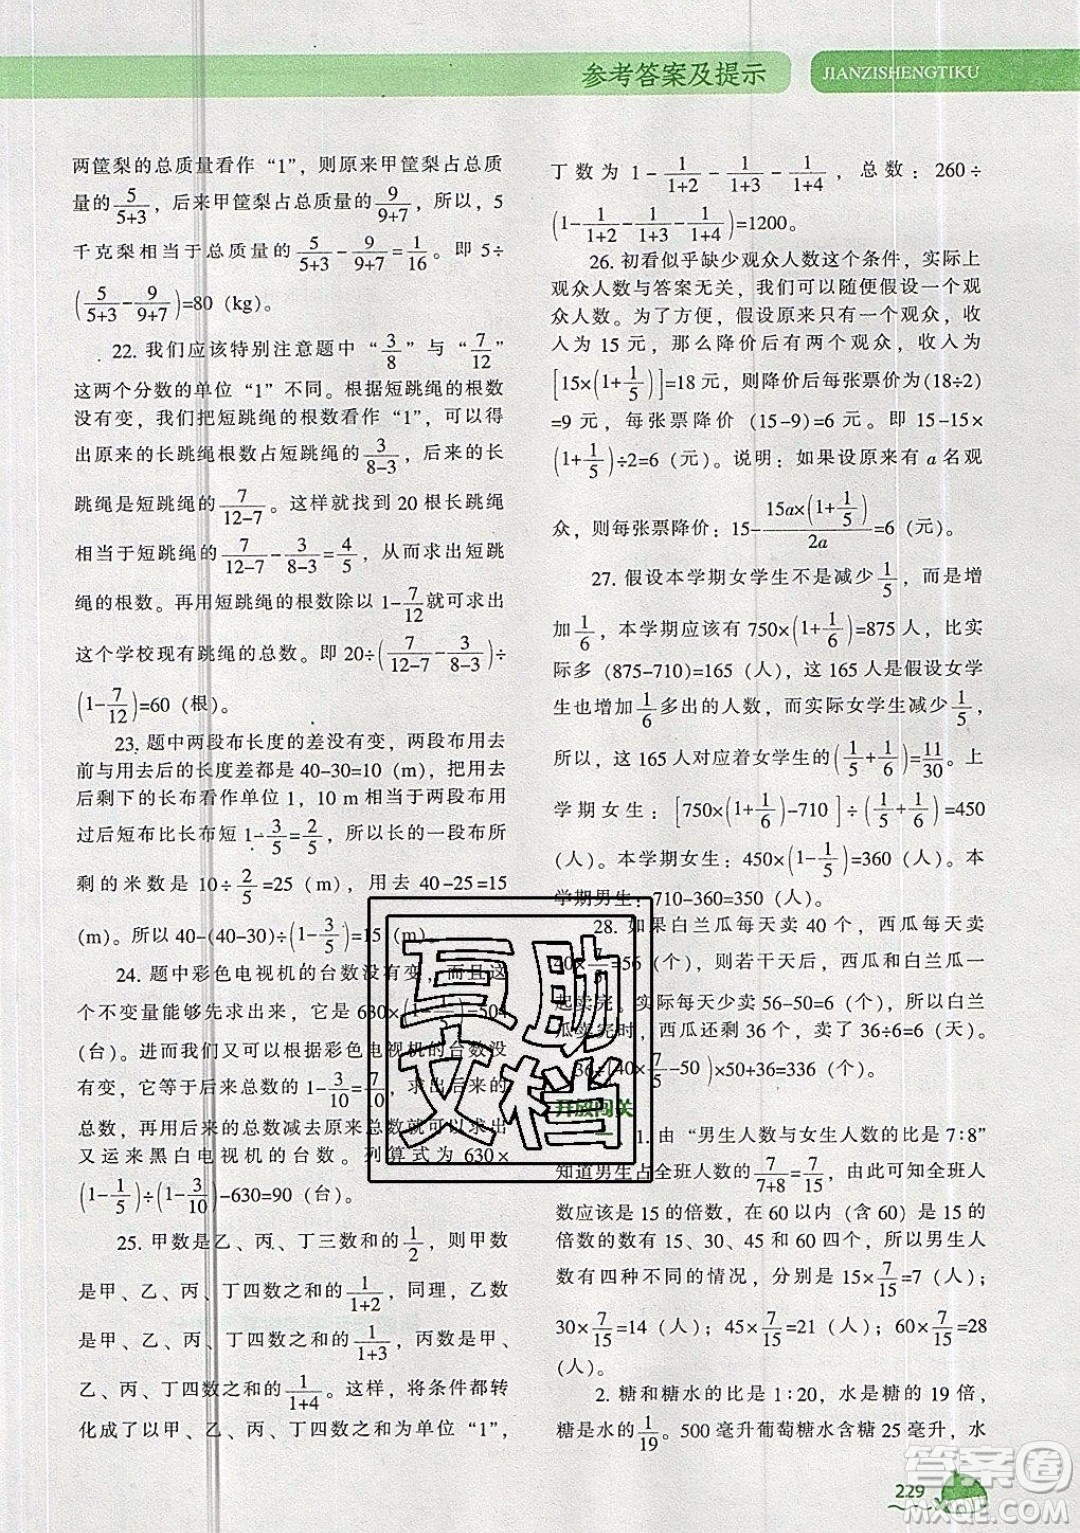 参考答案及提示
JIANZISHENGTIKU
两筐梨的总质量看作“1”，则原来甲筐梨占总质
量的5/(5+3)，后来甲筐梨占总质量的9/(9+7)。所以，5
千克梨相当于总质量的5/(5+3)-9/(9+7)=1/16。即 5÷
(5/(5+3)-9/(9+7))=80（kg）。
22. 我们应该特别注意题中“3/8”与“7/12”
这两个分数的单位“1”不同。根据短跳绳的根数
没有变，我们把短跳绳的根数看作“1”，可以得
出原来的长跳绳根数占短跳绳的3/(8-3)，后来的长
跳绳是短跳绳的7/(12-7)。这样就找到 20 根长跳绳
相当于短跳绳的7/(12-7)-3/(8-3)=4/5，从而求出短跳
绳的根数。再用短跳绳的根数除以 1-7/12可以求出
这个学校现有跳绳的总数。即 20÷(7/(12-7)-3/(8-3))÷
(1-7/12)=60（根）。
23. 题中两段布长度的差没有变，两段布用去
前与用去后的长度差都是 40-30=10（m），把用去
后剩下的长布看作单位 1，10 m 相当于两段布用
过后短布比长布短 1-3/5=2/5，所以长的一段布所
剩的米数是 10÷2/5=25（m），用去 40-25=15
(m)。所以 40-(40-30)÷(1-3/5)=15（m）。
24. 题中彩色电视机的台数没有变，而且这
个不变量能够先求出来，它是 630×(1-  =504
(台)。进而我们又可以根据彩色电视机的台数没
有变，它等于后来总数的 1-3/10=7/10，求出后来的
总数，再用后来的总数减去原来总数就可以求出
又运来黑白电视机的台数。列算式为 630×
(1-1/5)÷(1-3/10)-630=90（台）。
25. 甲数是乙、丙、丁三数和的1/2，则甲数
是甲、乙、丙、丁四数之和的1/(1+2)，同理，乙数
是甲、乙、丙、丁四数之和的1/(1+3)，丙数是甲、
乙、丙、丁四数之和的1/(1+4)。这样，将条件都转
化成了以甲、乙、丙、丁四数之和为单位“1”，
丁数为 1-1/(1+2)-1/(1+3)-1/(1+4)，总数：260÷
(1-1/(1+2)-1/(1+3)-1/(1+4))=1200。
26. 初看似乎缺少观众人数这个条件，实际上
观众人数与答案无关，我们可以随便假设一个观
众人数。为了方便，假设原来只有一个观众，收入
为 15 元，那么降价后有两个观众，收入为
[15×(1+1/5)]=18 元，则降价后每张票价为(18÷2)
=9 元，每张票降价（15-9）=6 元。即 15-15×
(1+1/5)÷2=6（元）。说明：如果设原来有 a 名观
众，则每张票降价：15-15a×(1+1/5)/2a=6（元）。
27. 假设本学期女学生不是减少1/5，而是增
加1/6，本学期应该有 750×(1+1/6)=875 人，比实
际多（875-710）=165（人），这 165 人是假设女学
生也增加1/6多出的人数，而实际女学生减少1/5，
所以，这 165 人对应着女学生的(1/5+1/6)=11/30。上
学期女生：[750×(1+1/6)-710]÷(1/5+1/6)=450
（人）。本学期女生：450×(1-1/5)=360（人）。本
学期男生：710-360=350（人）。
28. 如果白兰瓜每天卖 40 个，西瓜每天卖
40×7/5=56（个），则若干天后，西瓜和白兰瓜一
起卖完。实际每天少卖 56-50=6（个），所以白兰
瓜卖完时，西瓜还剩 36 个，卖了 36÷6=6（天）。
36÷(40×7/5-50)×50+36=336（个）。
开放闯关
1. 由“男生人数与女生人数的比是 7∶8”
知道男生占全班人数的7/(7+8)=7/15，由此可知全班人
数应该是 15 的倍数，在 60 以内（含 60）是 15 的
倍数的有 15、30、45、60 四个数，所以男生人
数有四种不同的情况，分别是 15×7/15=7（人）；
30×7/15=14（人）；45×7/15=21（人）；60×7/15=28
（人）。
2. 糖和糖水的比是 1∶20，水是糖的 19 倍，
糖是水的1/19。500 毫升葡萄糖水含糖 25 毫升，水
互助文档
229
答案圈
MXQE.COM